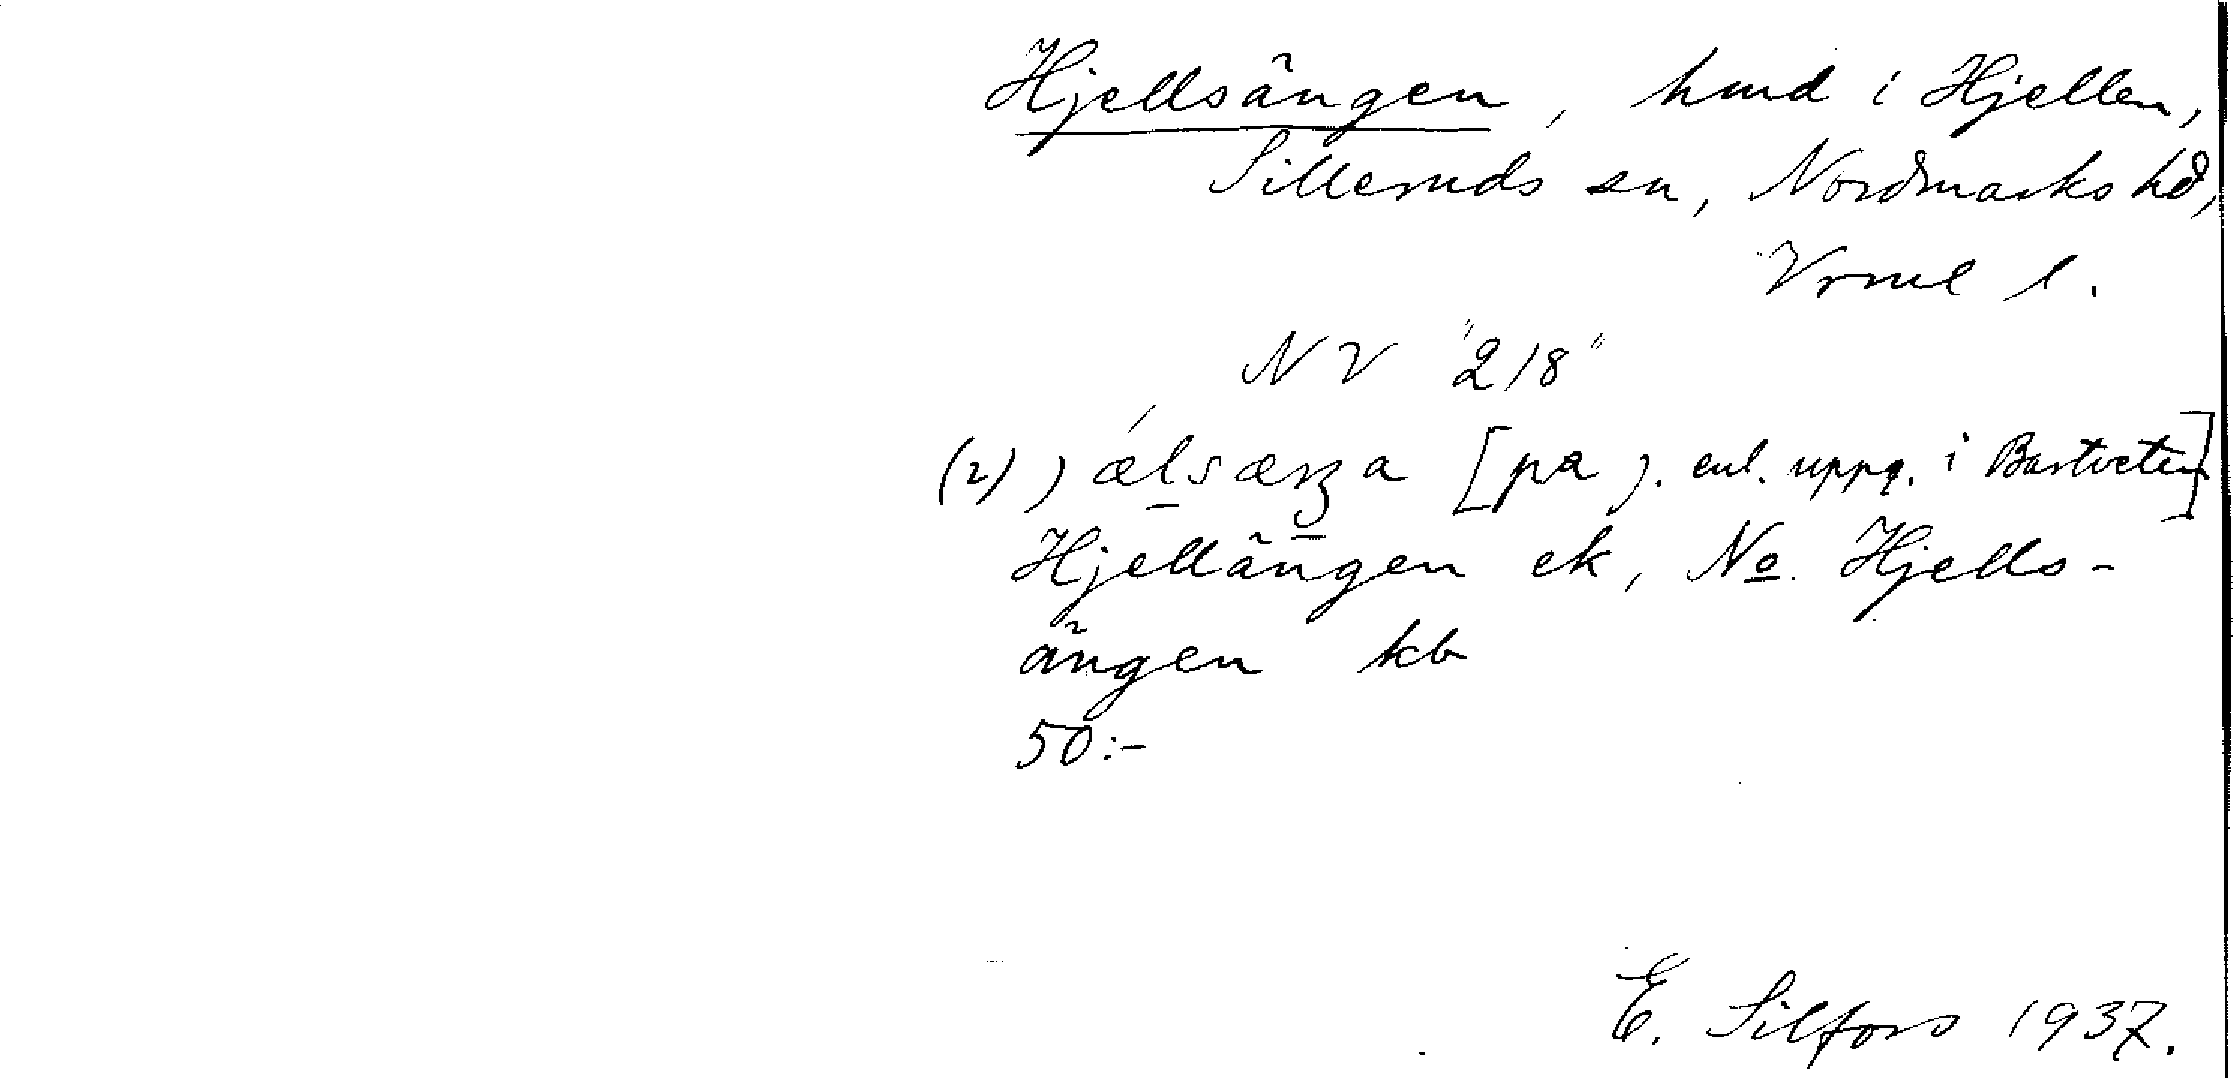 Hjellsängen, hmd i Hjellen,
Silleruds sn, Nordmarks hd,
Vrml l.
NV "218"
(2) ) ælsæŋa [pa ). enl. uppg. i Bortveten]
Hjellängen ek, No. Hjells-
ängen kb
50:-
E. Silfors 1937.